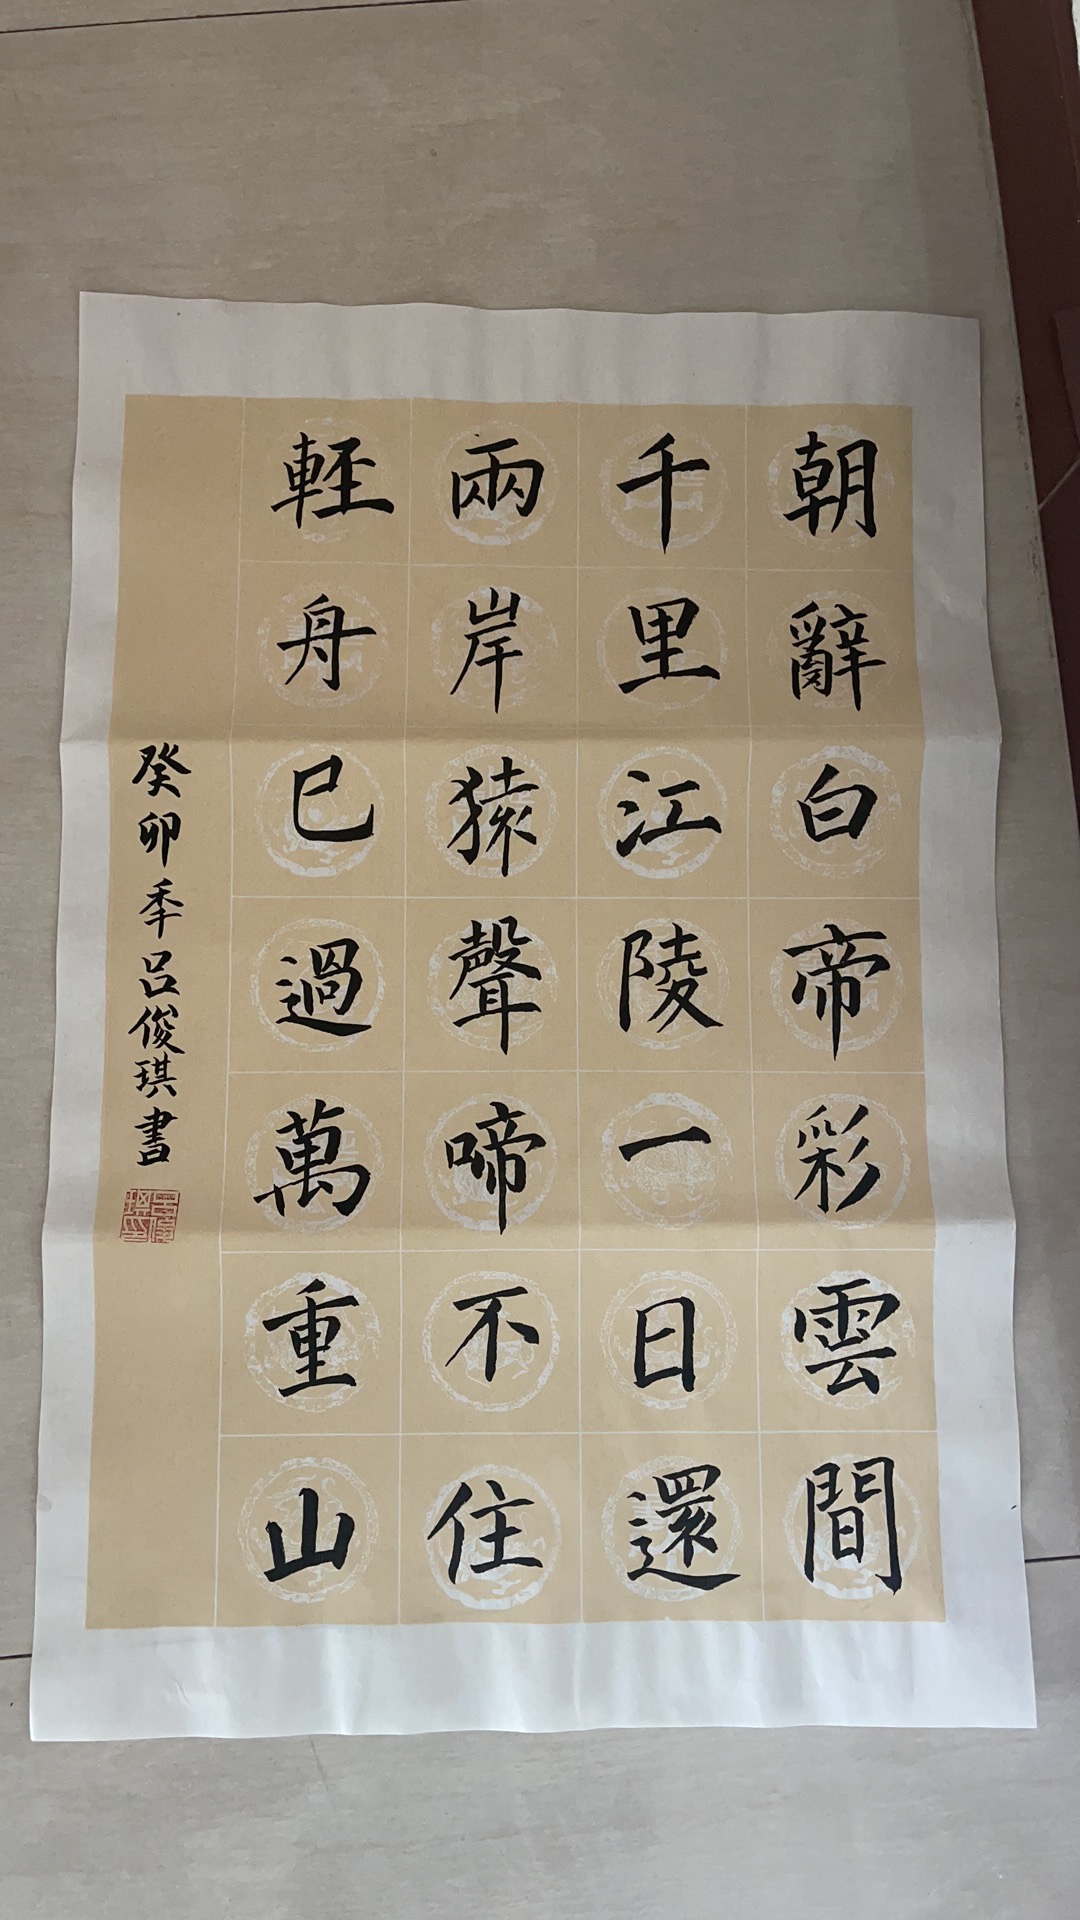 朝辭白帝彩雲間
千里江陵一日還
兩岸猿聲啼不住
輕舟已過萬重山
癸卯季吕俊琪書